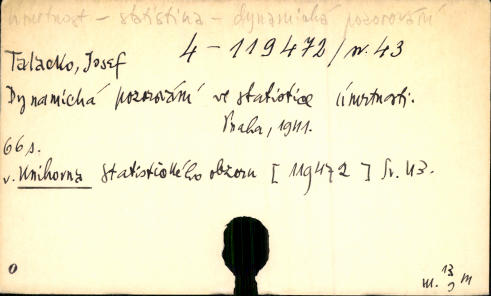 úmrtnost - statistika - dynamická pozorování
4 - 119472/sv. 43
Talacko, Josef
Dynamická pozorování ve statistice úmrtnosti.
Praha, 1941.
66 s.
v. Knihovna Statistického obzoru [119472] Sv. 43.
0
m. 13/9 m